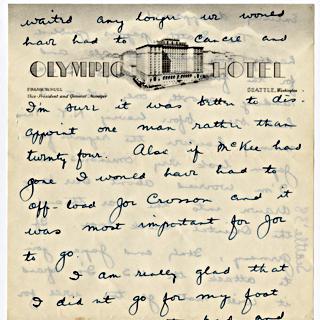 waited any longer we would
have had to cancel and
OLYMPIC HOTEL
FRANK W. HULL
Vice-President and General Manager
SEATTLE, Washington
I'm sure it was better to dis-
appoint one man rather than
twenty four. Also if McKee had
gone I would have had to
off-load Joe Crosson and it
was most important for Joe
to go.
I am really glad that
I didn't go for my foot